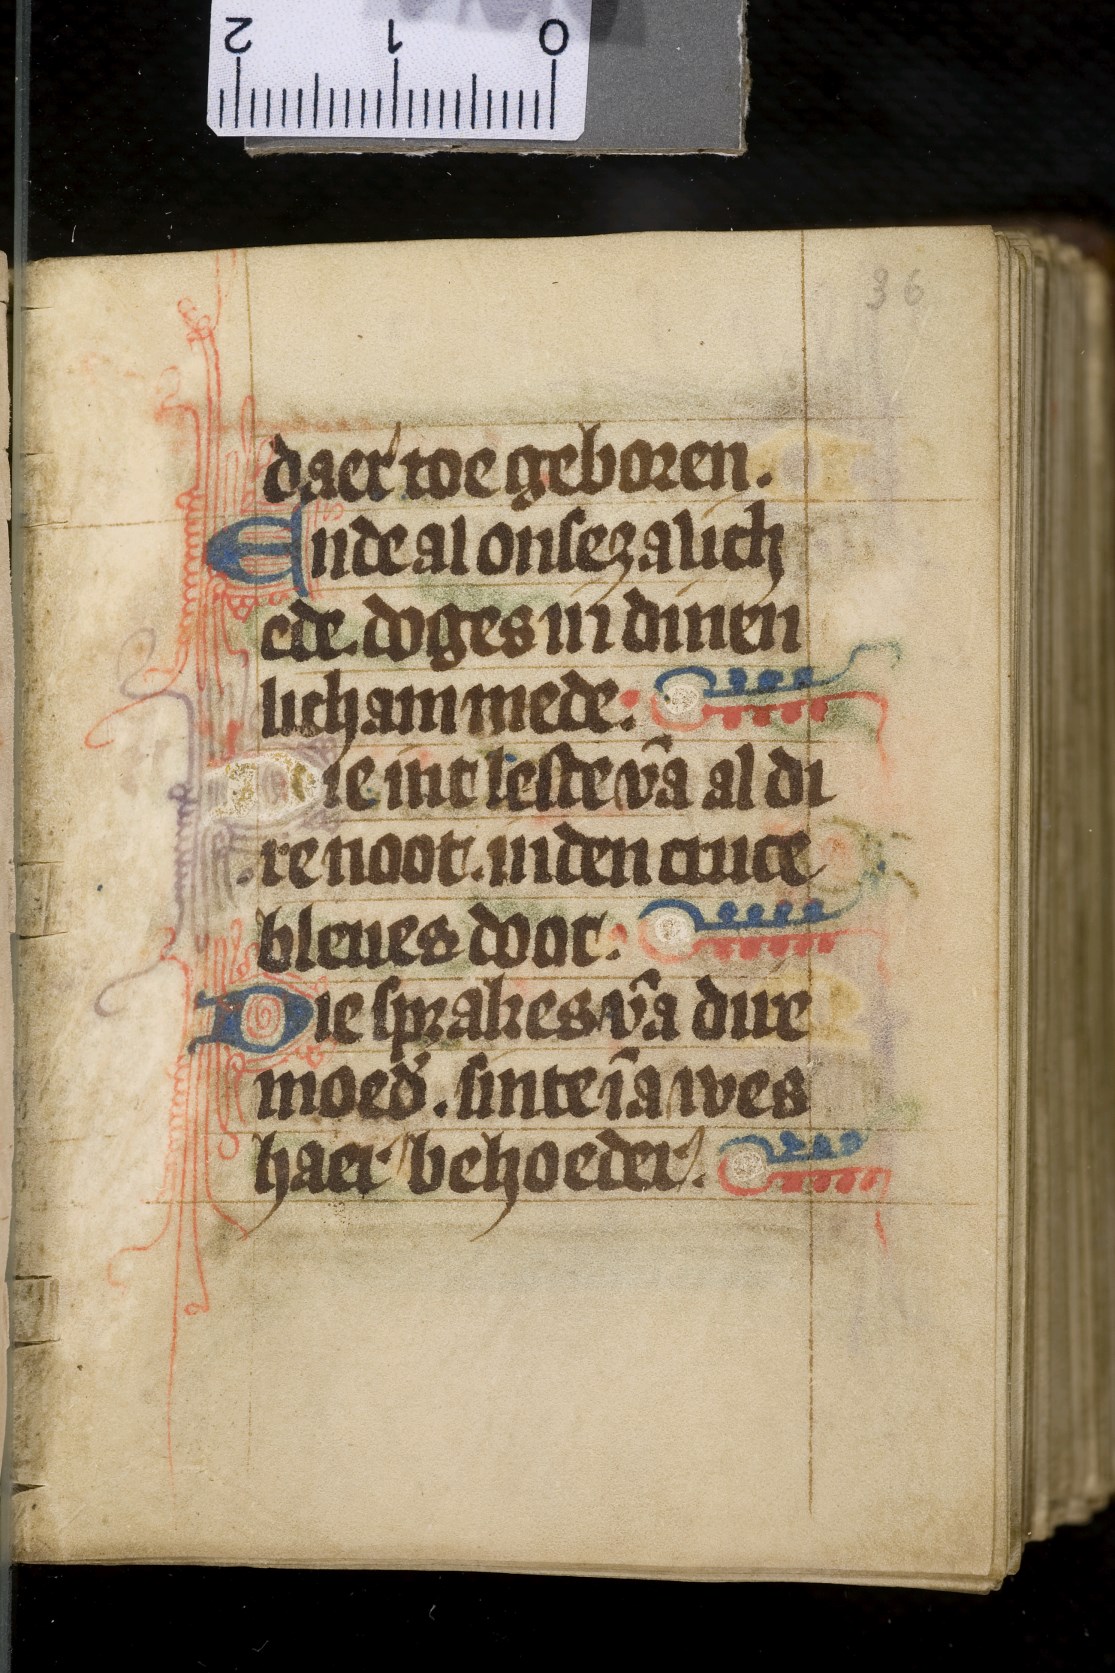 2 1 0
36
daer toe geboren.
Ende al onse zalich
ede. doges in dinen
lichammede.
Die int leste vā al di
re noot. inden cruce
bleues doot.
Die sprakes vā dire
moed'. sinte iā wes
haer behoeder.